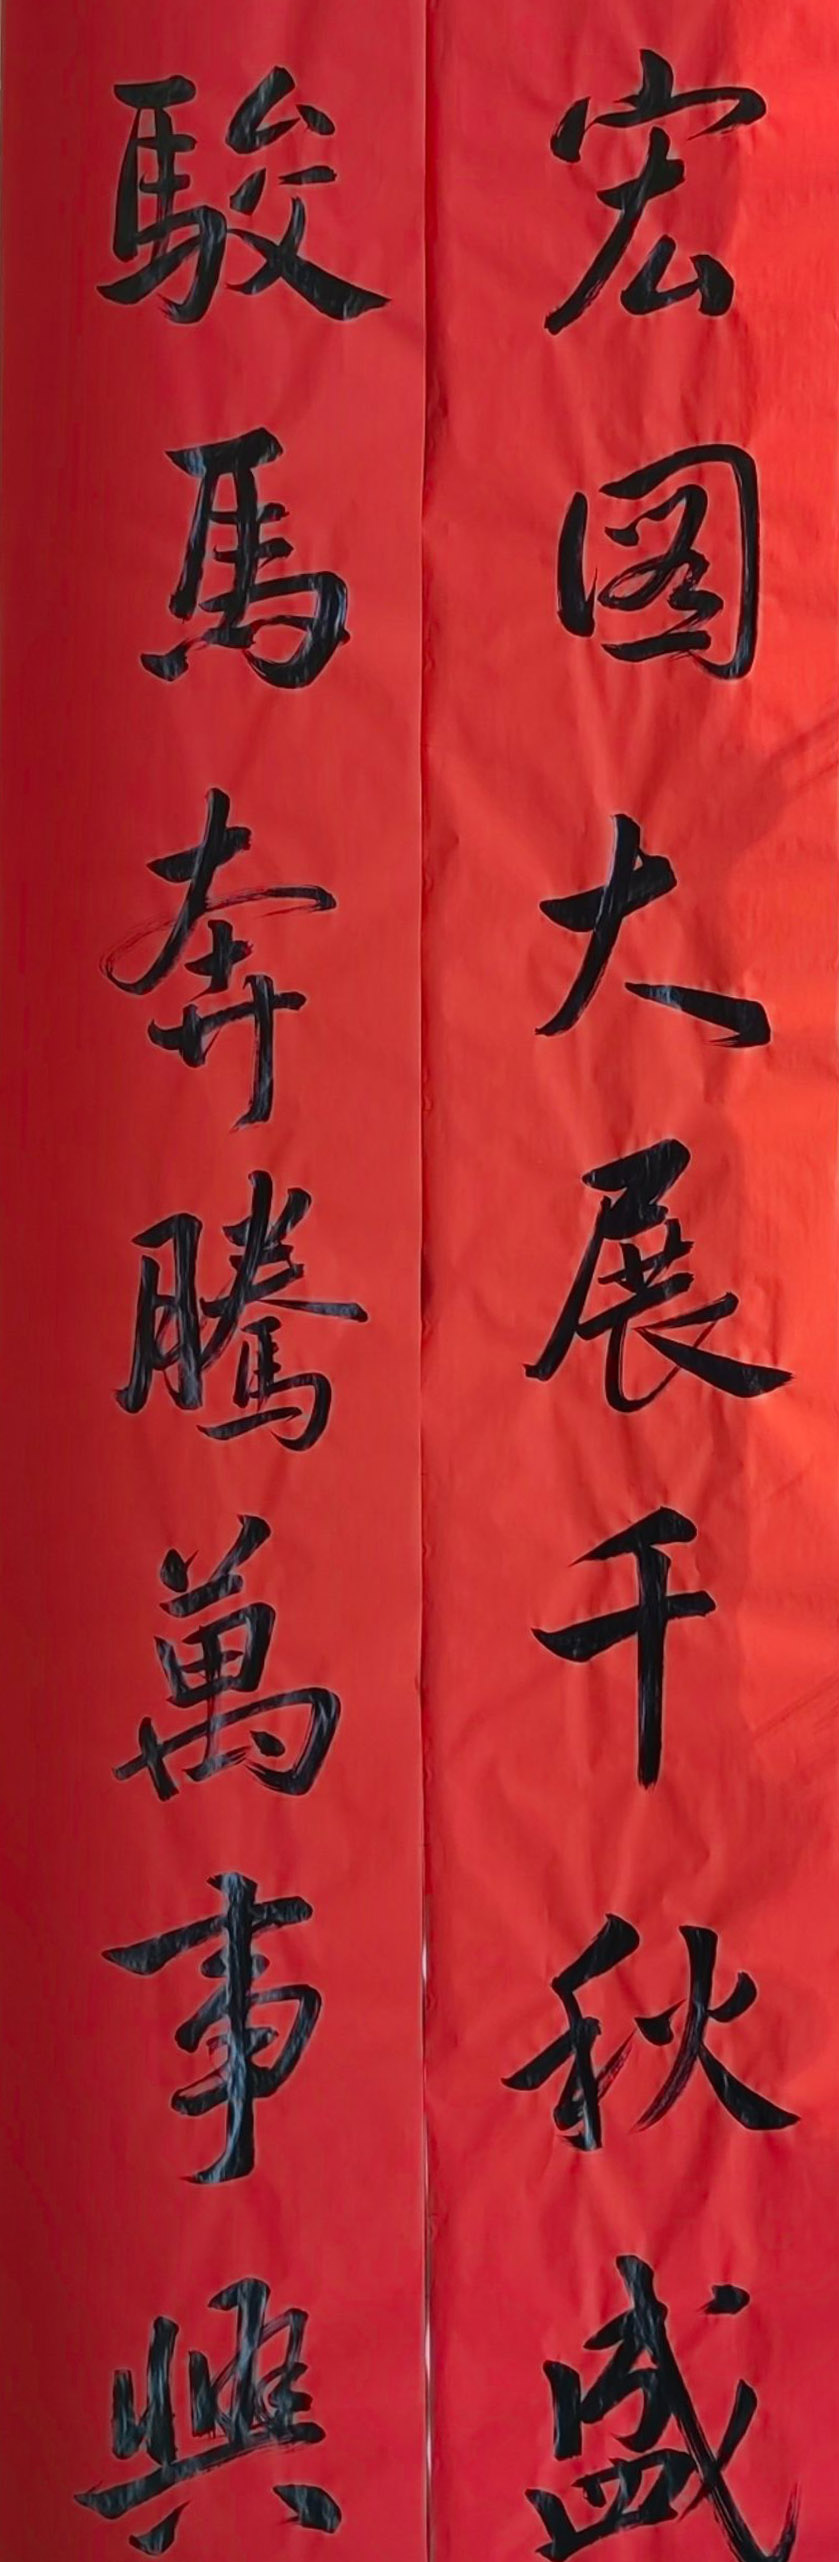 宏图大展千秋盛
駿馬奔騰萬事興